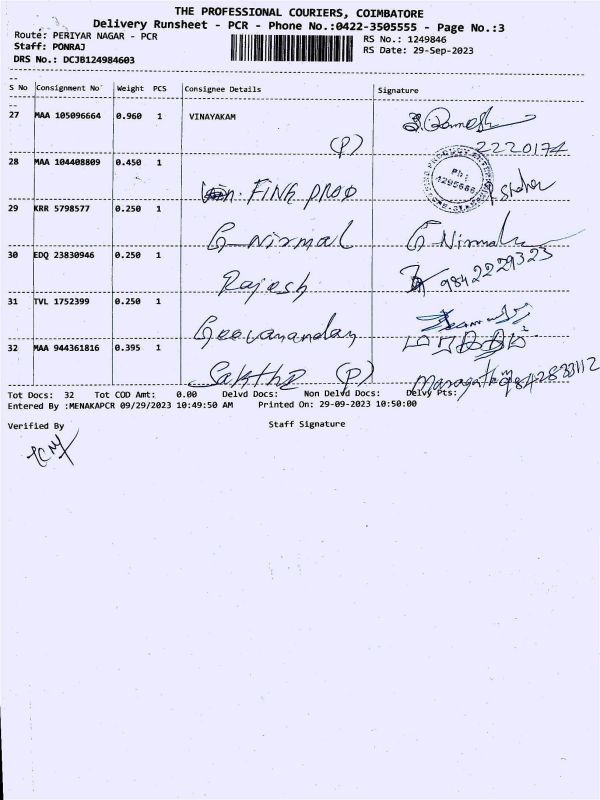 THE PROFESSIONAL COURIERS, COIMBATORE
Delivery Runsheet - PCR - Phone No.:0422-3505555 - Page No.:3
Route: PERIYAR NAGAR - PCR
RS No.: 1249846
Staff: PONRAJ
RS Date: 29-Sep-2023
DRS No.: DCJB124984603
S No Consignment No Weight PCS Consignee Details Signature
27 MAA 105096664 0.960 1 VINAYAKAM
(P) 2220174
28 MAA 104408809 0.450 1
FINK PROD
29 KRR 5798577 0.250 1
G Nirmal G Nirmal
30 EDQ 23830946 0.250 1
Rajesh 9842229323
31 TVL 1752399 0.250 1
Geevanandan
32 MAA 944361816 0.395 1
Sakthi (P)
Tot Docs: 32 Tot COD Amt: 0.00 Delvd Docs: Non Delvd Docs: Delvy Pts:
Entered By :MENAKAPCR 09/29/2023 10:49:50 AM Printed On: 29-09-2023 10:50:00
Verified By Staff Signature